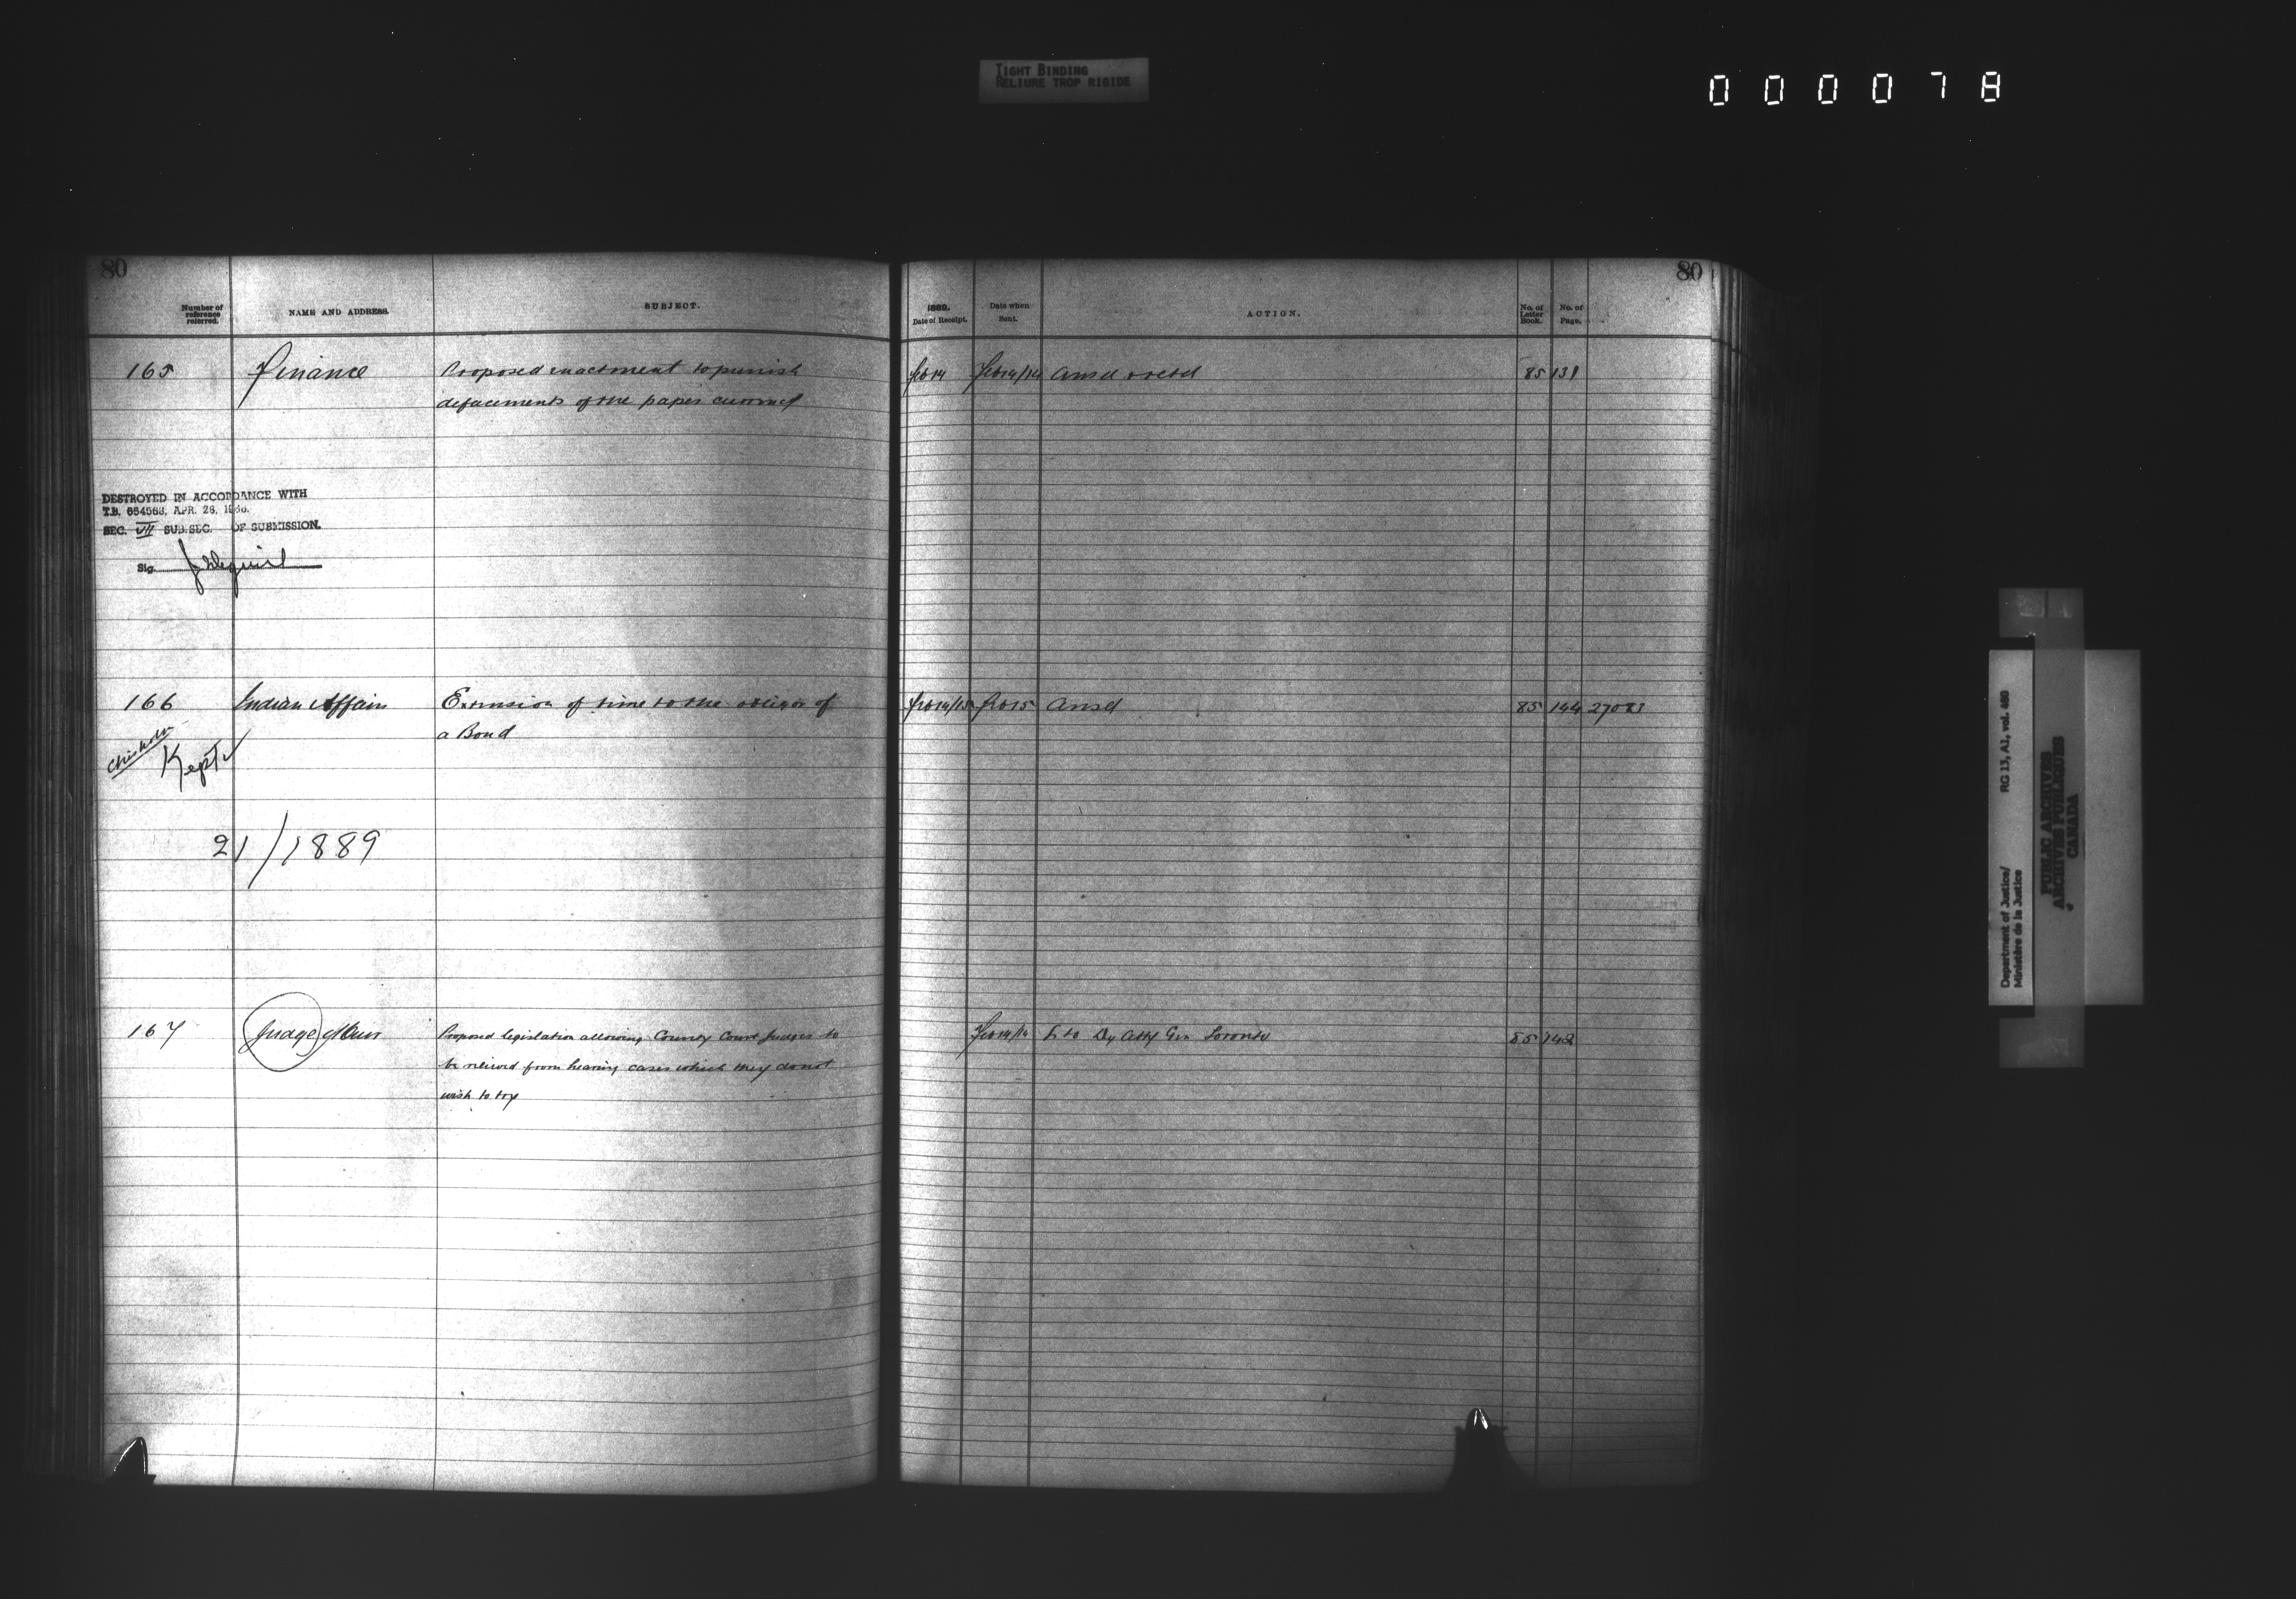 TIGHT BINDING
RELIURE TROP RIGIDE
000078
80
Number of reference referred.
NAME AND ADDRESS.
SUBJECT.
165
Finance
Proposed enactment to punish
defacements of the paper currency
DESTROYED IN ACCORDANCE WITH
T.B. 654563, APR. 26, 1966.
SEC. VII SUB.SEC. OF SUBMISSION.
Sig.
166
Indian Affairs
Extension of time to the obligor of
a Bond
Chisholm
Kept
21/1889
167
Judge Muir
Proposed legislation allowing County Court Judges to
be relieved from hearing cases which they do not
wish to try
80
1889.
Date of Receipt.
Date when Sent.
ACTION.
No. of Letter Book.
No. of Page.
Feb 14 Feb 14/14 Ansd & retd 85 131
Feb 14/15 Feb 15 Ansd 85 144 27083
Feb 14/14 L to Dy Atty Gen Toronto 85 142
Department of Justice/
Ministère de la Justice
RG 13, A1, vol. 480
PUBLIC ARCHIVES
ARCHIVES PUBLIQUES
CANADA